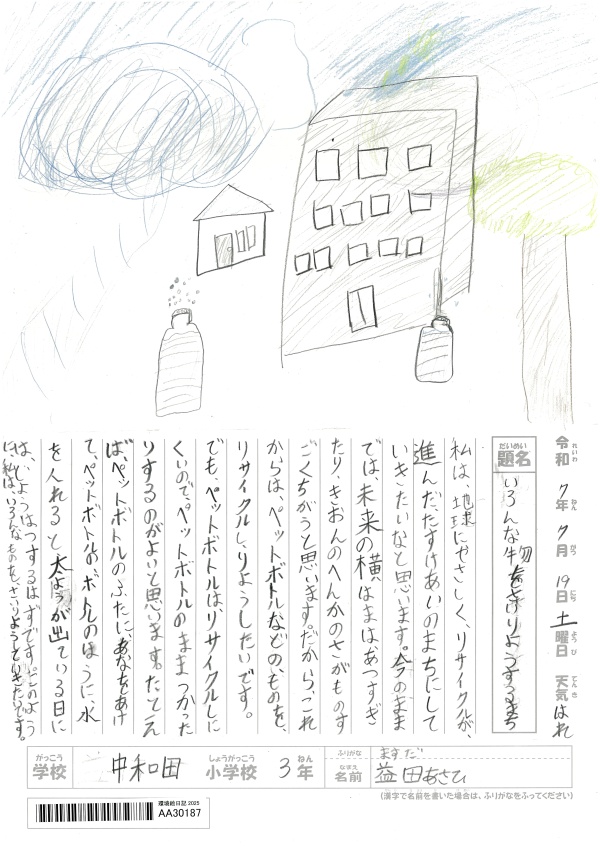 令和7年7月19日土曜日 天気はれ
れいわ ねん がつ にち ようび てんき
だいめい
題名
いろんな物をさいりようするまち
私は、地球にやさしく、リサイクルが、
進んだ、たすけあいのまちにして
いきたいなと思います。今のまま
では、未来の横はまはあつすぎ
たり、きおんのへんかのさがものす
ごくちがうと思います。だから、これ
からは、ペットボトルなどの、ものを、
リサイクルし、りようしたいです。
でも、ペットボトルは、リサイクルしに
くいので、ペットボトルのままつかった
りするのがよいと思います。たとえ
ば、ペットボトルのふたに、あなをあけ
て、ペットボトルの、ボトルのほうに、水
を入れると太ようが出ている日に
は、じょうはつするはずです。このよう
に私は、いろんなものを、さいりようといきたいです。
がっこう
学校
中和田
しょうがっこう
小学校
3年
ねん
ふりがな
ますだ
なまえ
名前
益田あさひ
(漢字で名前を書いた場合は、ふりがなをふってください)
環境絵日記 2025
AA30187